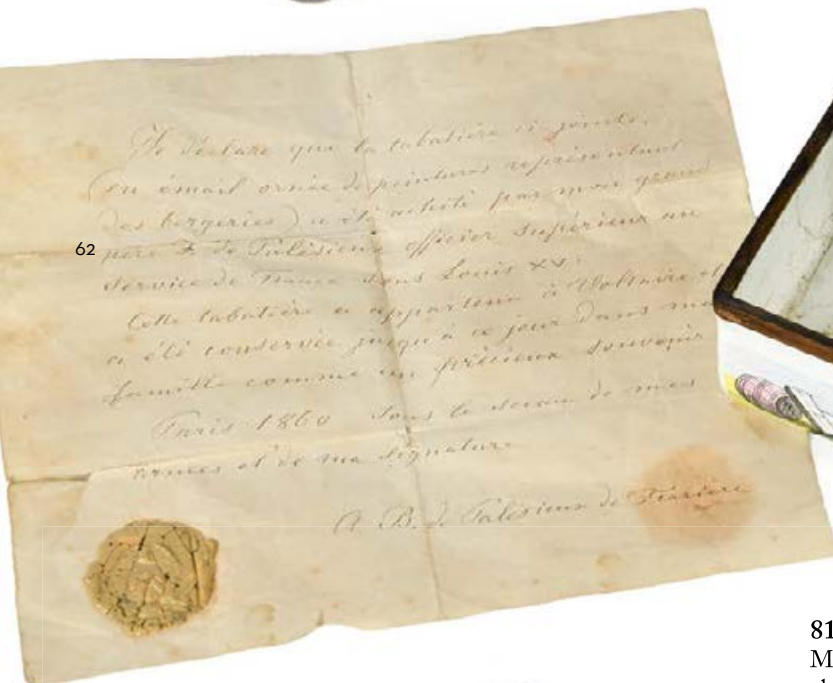 Je déclare que la tabatière ci-jointe,
(en émail ornée de peintures représentant
des bergeries) a été acheté par mon grand
père F. de Palésieux officier supérieur au
service de France sous Louis XV.
Cette tabatière a appartenu à Voltaire et
a été conservée jusqu'à ce jour dans ma
famille comme un précieux souvenir
Paris 1860 Sous le sceau de mes
armes et de ma signature
A. B. de Palésieux de
62
81
M